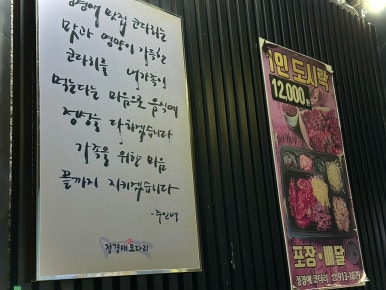 정경애 맛집 코다리는
맛과 영양이 가득한
코다리를 내가족이
먹는다는 마음으로 음식에
정성을 다하겠습니다
가족을 위한 마음
끝까지 지키겠습니다
-주인백
정경애 코다리
1인 도시락
12,000원
포장·배달
정경애 코다리